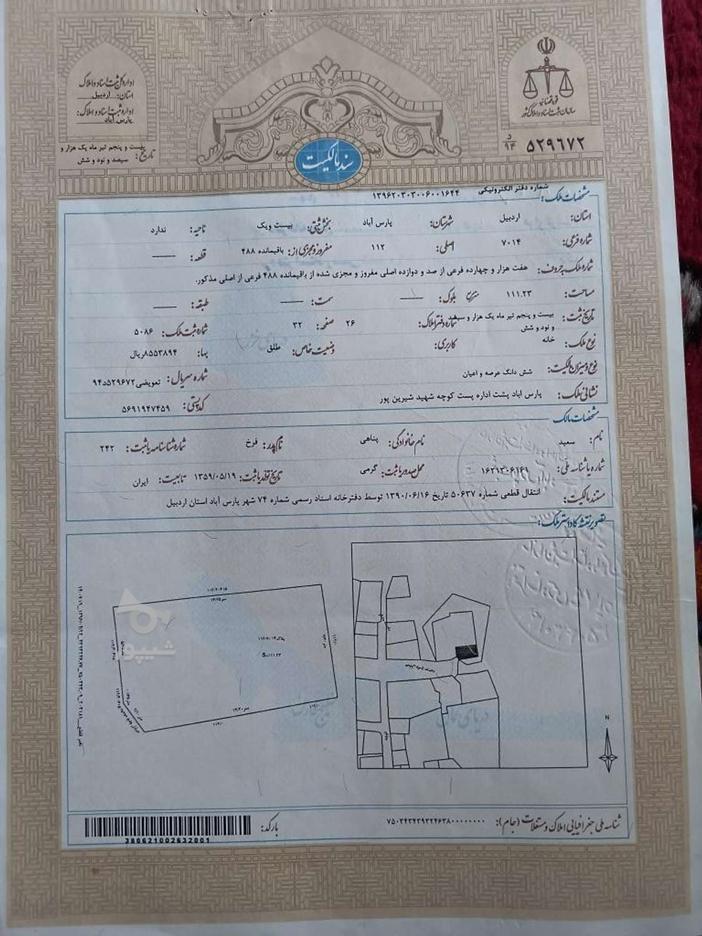 قوه قضائیه
سازمان ثبت اسناد و املاک کشور
۵۲۹۶۷۲ د ۹۴
اداره کل ثبت اسناد و املاک
استان: اردبیل
اداره ثبت اسناد و املاک
پارس آباد
تاریخ: بیست و پنجم تیر ماه یک هزار و سیصد و نود و شش
سند مالکیت
مشخصات ملک: شماره دفتر الکترونیکی ۱۳۹۶۲۰۳۰۳۰۰۶۰۰۱۶۴۴
استان: اردبیل شهرستان: پارس آباد بخش ثبتی: بیست ویک ناحیه: ندارد
شماره فرعی: ۷۰۱۴ اصلی: ۱۱۲ مفروز و مجزی از: باقیمانده ۴۸۸ قطعه: ——
شماره ملک به حروف: هفت هزار و چهارده فرعی از صد و دوازده اصلی مفروز و مجزی شده از باقیمانده ۴۸۸ فرعی از اصلی مذکور.
مساحت: ۱۱۱.۲۳ مترمربع بلوک: —— سمت: —— طبقه: ——
تاریخ ثبت: بیست و پنجم تیر ماه یک هزار و سیصد و نود و شش شماره دفتر املاک: ۲۶ صفحه: ۳۲ شماره ثبت ملک: ۵۰۸۶
نوع ملک: خانه کاربری: وضعیت خاص: طلق بها: ۸۵۵۳۸۹۴ریال
نوع و میزان مالکیت: شش دانگ عرصه و اعیان شماره سریال: تعویضی ۵۲۹۶۷۲د۹۴
نشانی ملک: پارس آباد پشت اداره پست کوچه شهید شیرین پور کدپستی: ۵۶۹۱۹۴۷۴۵۹
مشخصات مالک
نام: سعید نام خانوادگی: پناهی نام پدر: فرخ شماره شناسنامه/ثبت: ۲۴۲
شماره/شناسه ملی: ۱۶۲۱۳۰۶۱۶۱ محل صدور/ثبت: گرمی تاریخ تولد/ثبت: ۱۳۵۹/۰۵/۱۹ تابعیت: ایران
مستند مالکیت: انتقال قطعی شماره ۵۰۶۳۷ تاریخ ۱۳۹۰/۰۶/۱۶ توسط دفترخانه اسناد رسمی شماره ۷۴ شهر پارس آباد استان اردبیل
تصویر نقشه کاداستر ملک:
N
شیپور
دریای عمان
شناسه ملی جغرافیایی املاک و مستغلات (جام): ۷۵۰۳۴۳۴۳۹۳۲۴۶۳۸۰۰۰۰۰۰۰۰
بارکد:
380621002632001